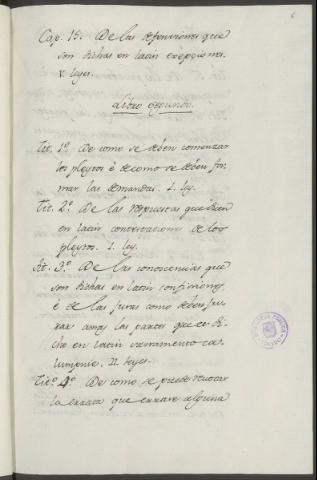 6
Cap. 15. De las defensiones que
son dichas en latin exepçiones.
V. leyes.
Libro segundo.
Tit. 1º. De como se deben comenzar
los pleytos é de como se deben for-
mar las demandas. 1. ley.
Tit. 2º. De las respuestas que dicen
en latin contestaciones de los
pleytos. 1. ley.
Tit. 3º. De las conoscencias que
son dichas en latin confisiones
é de las juras como deben ju-
rar amas las partes que es di-
cho en latin juramento ca-
lumpnie. II. leyes.
Tit. 4º. De como se puede revocar
la errata que errare alguna